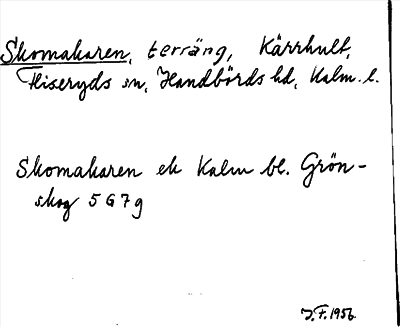 Skomakaren, terräng, Kärrhult,
Fliseryds sn, Handbörds hd, Kalm. l.
Skomakaren ek Kalm bl. Grön-
skog 5 G 7 g
J.F. 1956